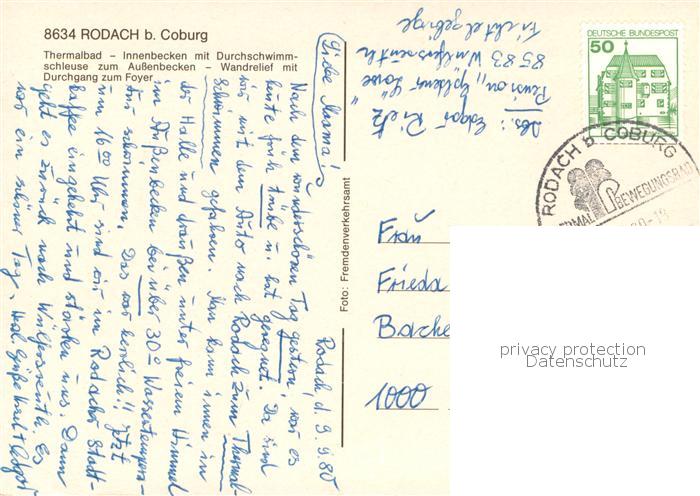 8634 RODACH b. Coburg
Thermalbad – Innenbecken mit Durchschwimm-
schleuse zum Außenbecken – Wandrelief mit
Durchgang zum Foyer
Foto: Fremdenverkehrsamt
Rodach, d. 9.9.80
Liebe Mama!
Nach dem wunderschönen Tag gestern, war es
heute früh trübe u. hat geregnet. Da sind
wir mit dem Auto nach Rodach zum Thermal-
schwimmen gefahren. Man kann innen in
der Halle und draußen unter freiem Himmel
im Außenbecken bei über 30° Wassertempera-
tur schwimmen. Das war herrlich!! Jetzt
um 16 00 Uhr sind wir im Rodacher Stadt-
kaffee eingekehrt und stärken uns. Dann
geht es zurück nach Wülfersreuth. Es
war ein schöner Tag.
Abs.: Edgar
Pension "Goldener Löwe"
8583
Fichtelgebirge
DEUTSCHE BUNDESPOST
50
RODACH b COBURG
THERMAL
BEWEGUNGSBAD
80-18
Frau
Frieda
Bache
1000
privacy protection
Datenschutz